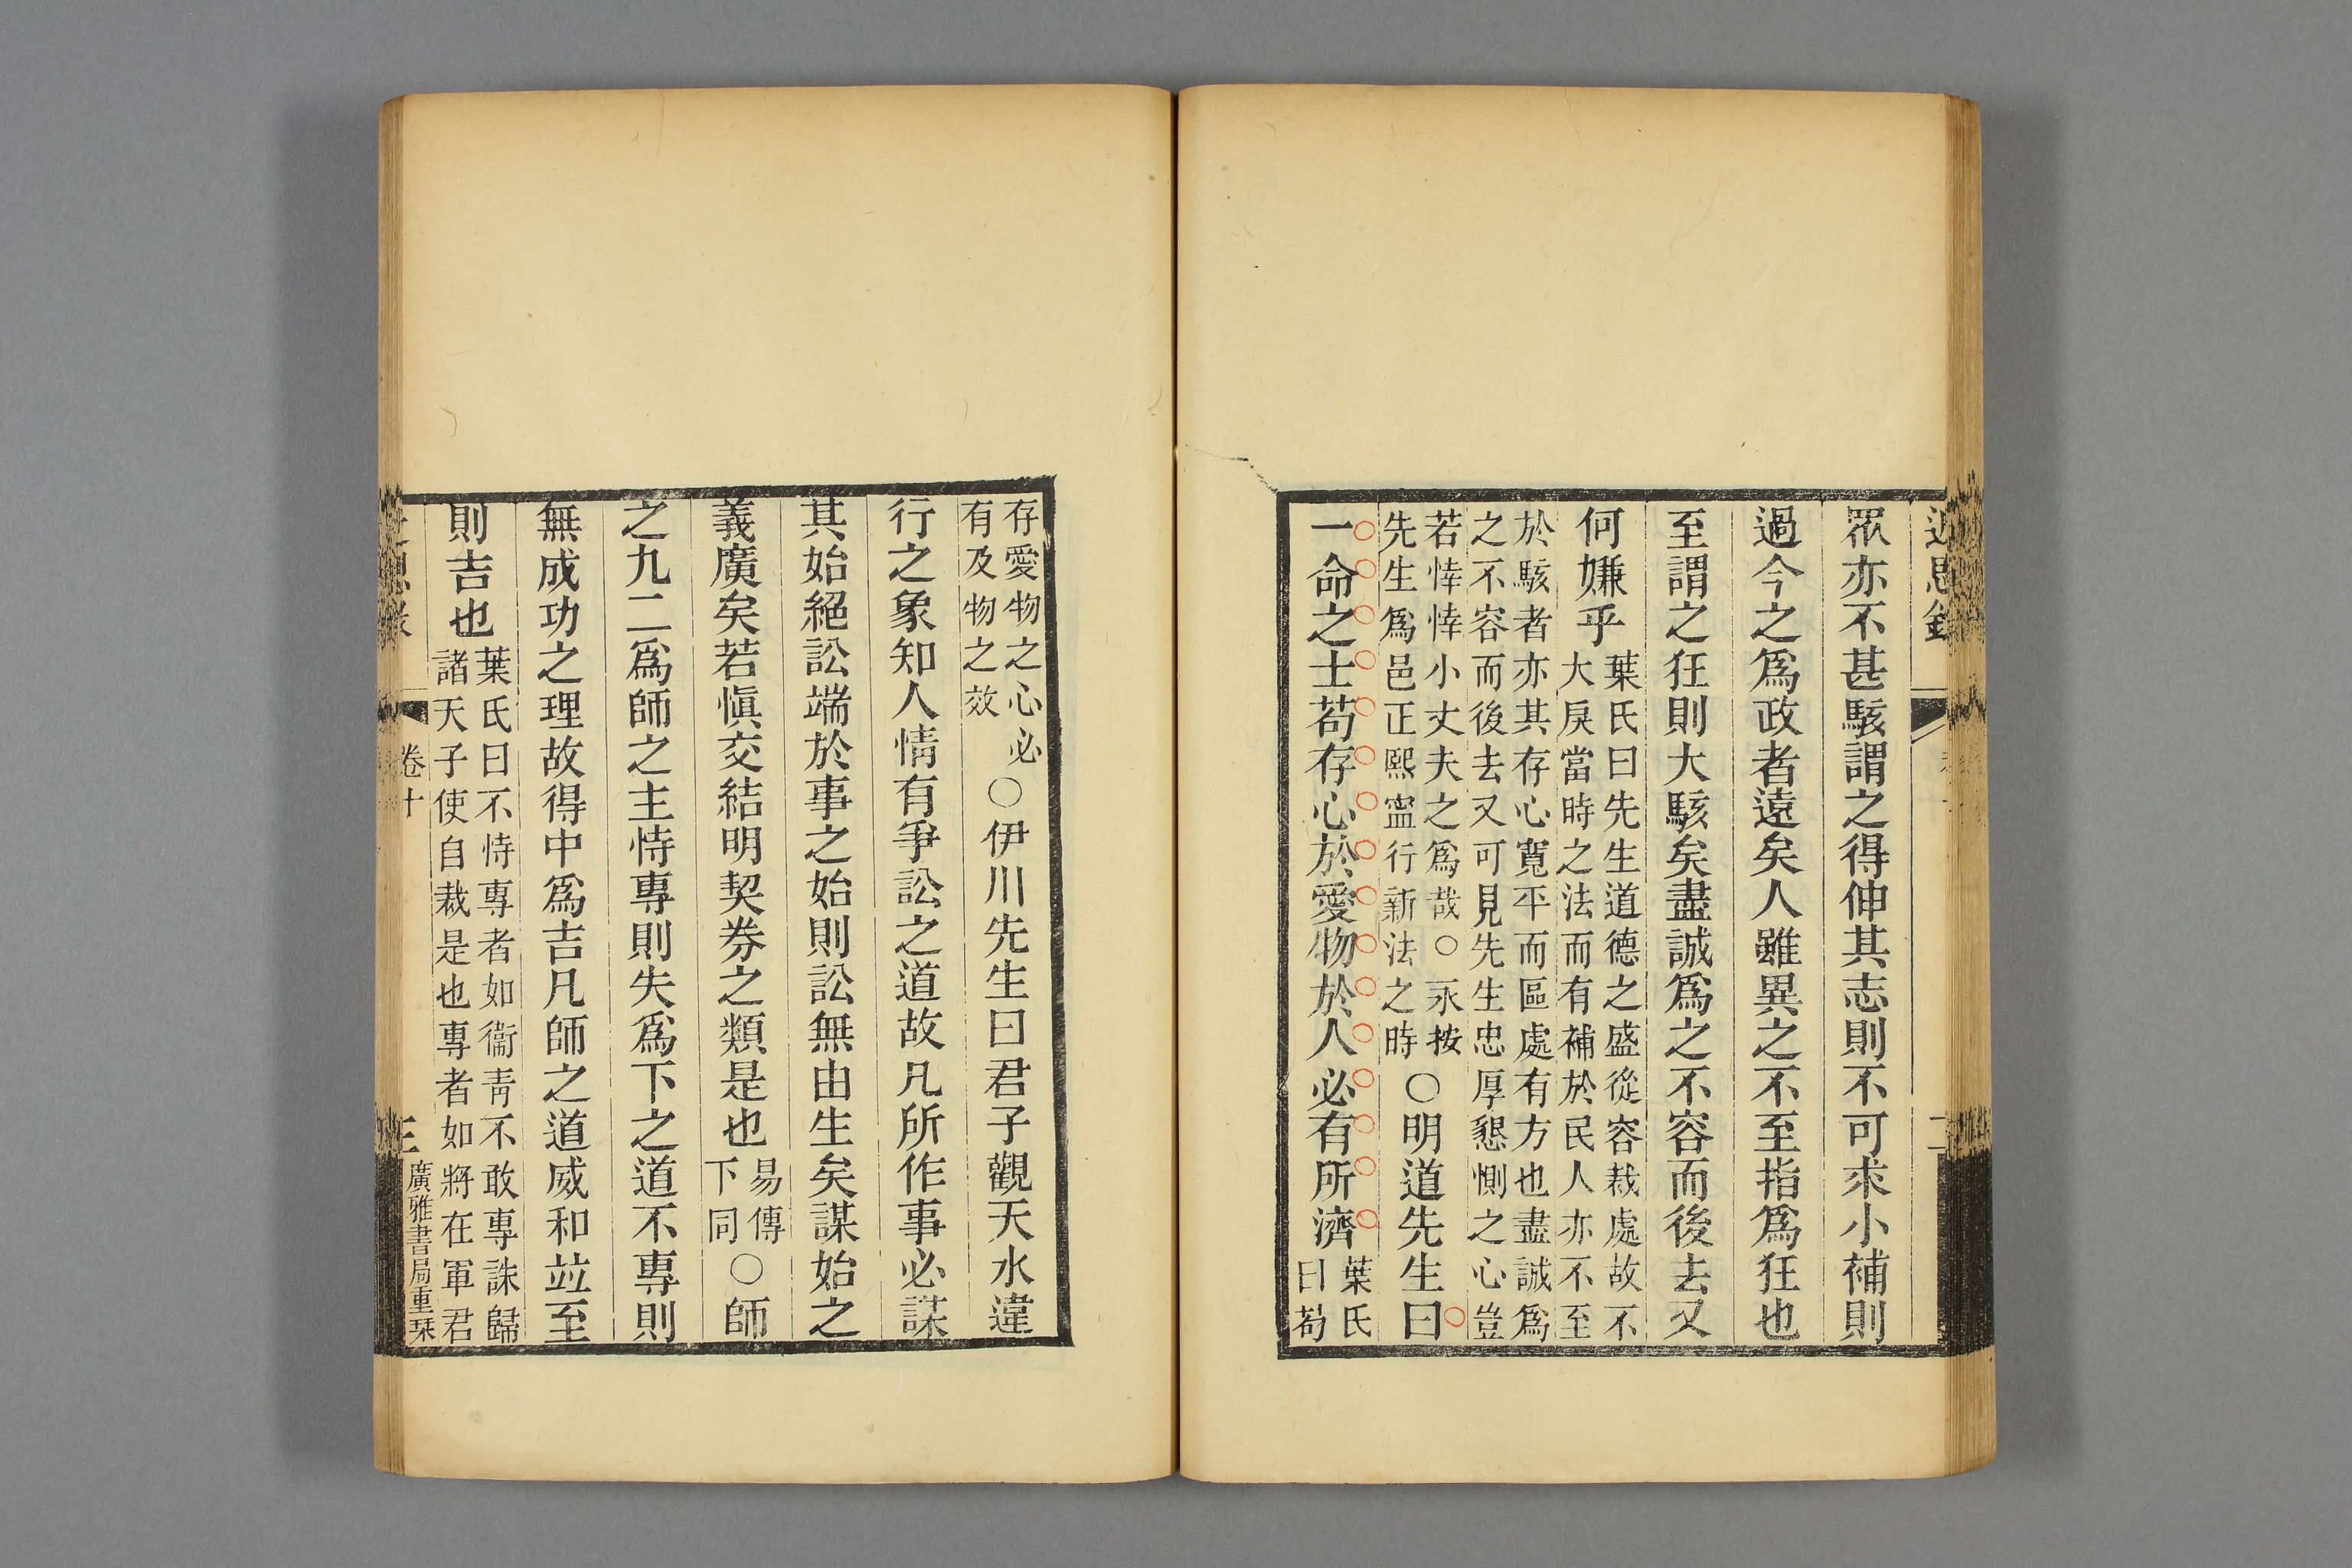 近思錄
眾亦不甚駭謂之得伸其志則不可求小補則
過今之爲政者遠矣人雖異之不至指爲狂也
至謂之狂則大駭矣盡誠爲之不容而後去又
何嫌乎
葉氏曰先生道德之盛從容裁處故不
大戾當時之法而有補於民人亦不至
於駭者亦其存心寬平而區處有方也盡誠爲
之不容而後去又可見先生忠厚懇惻之心豈
若悻悻小丈夫之爲哉○永按
先生爲邑正熙寧行新法之時
○明道先生曰
一命之士苟存心於愛物於人必有所濟
葉氏
曰苟
存愛物之心必
有及物之效
○伊川先生曰君子觀天水違
行之象知人情有爭訟之道故凡所作事必謀
其始絕訟端於事之始則訟無由生矣謀始之
義廣矣若愼交結明契券之類是也
易傳
下同
○師
之九二爲師之主恃專則失爲下之道不專則
無成功之理故得中爲吉凡師之道威和竝至
則吉也
葉氏曰不恃專者如衞青不敢專誅歸
諸天子使自裁是也專者如將在軍君
卷十
三
廣雅書局重栞